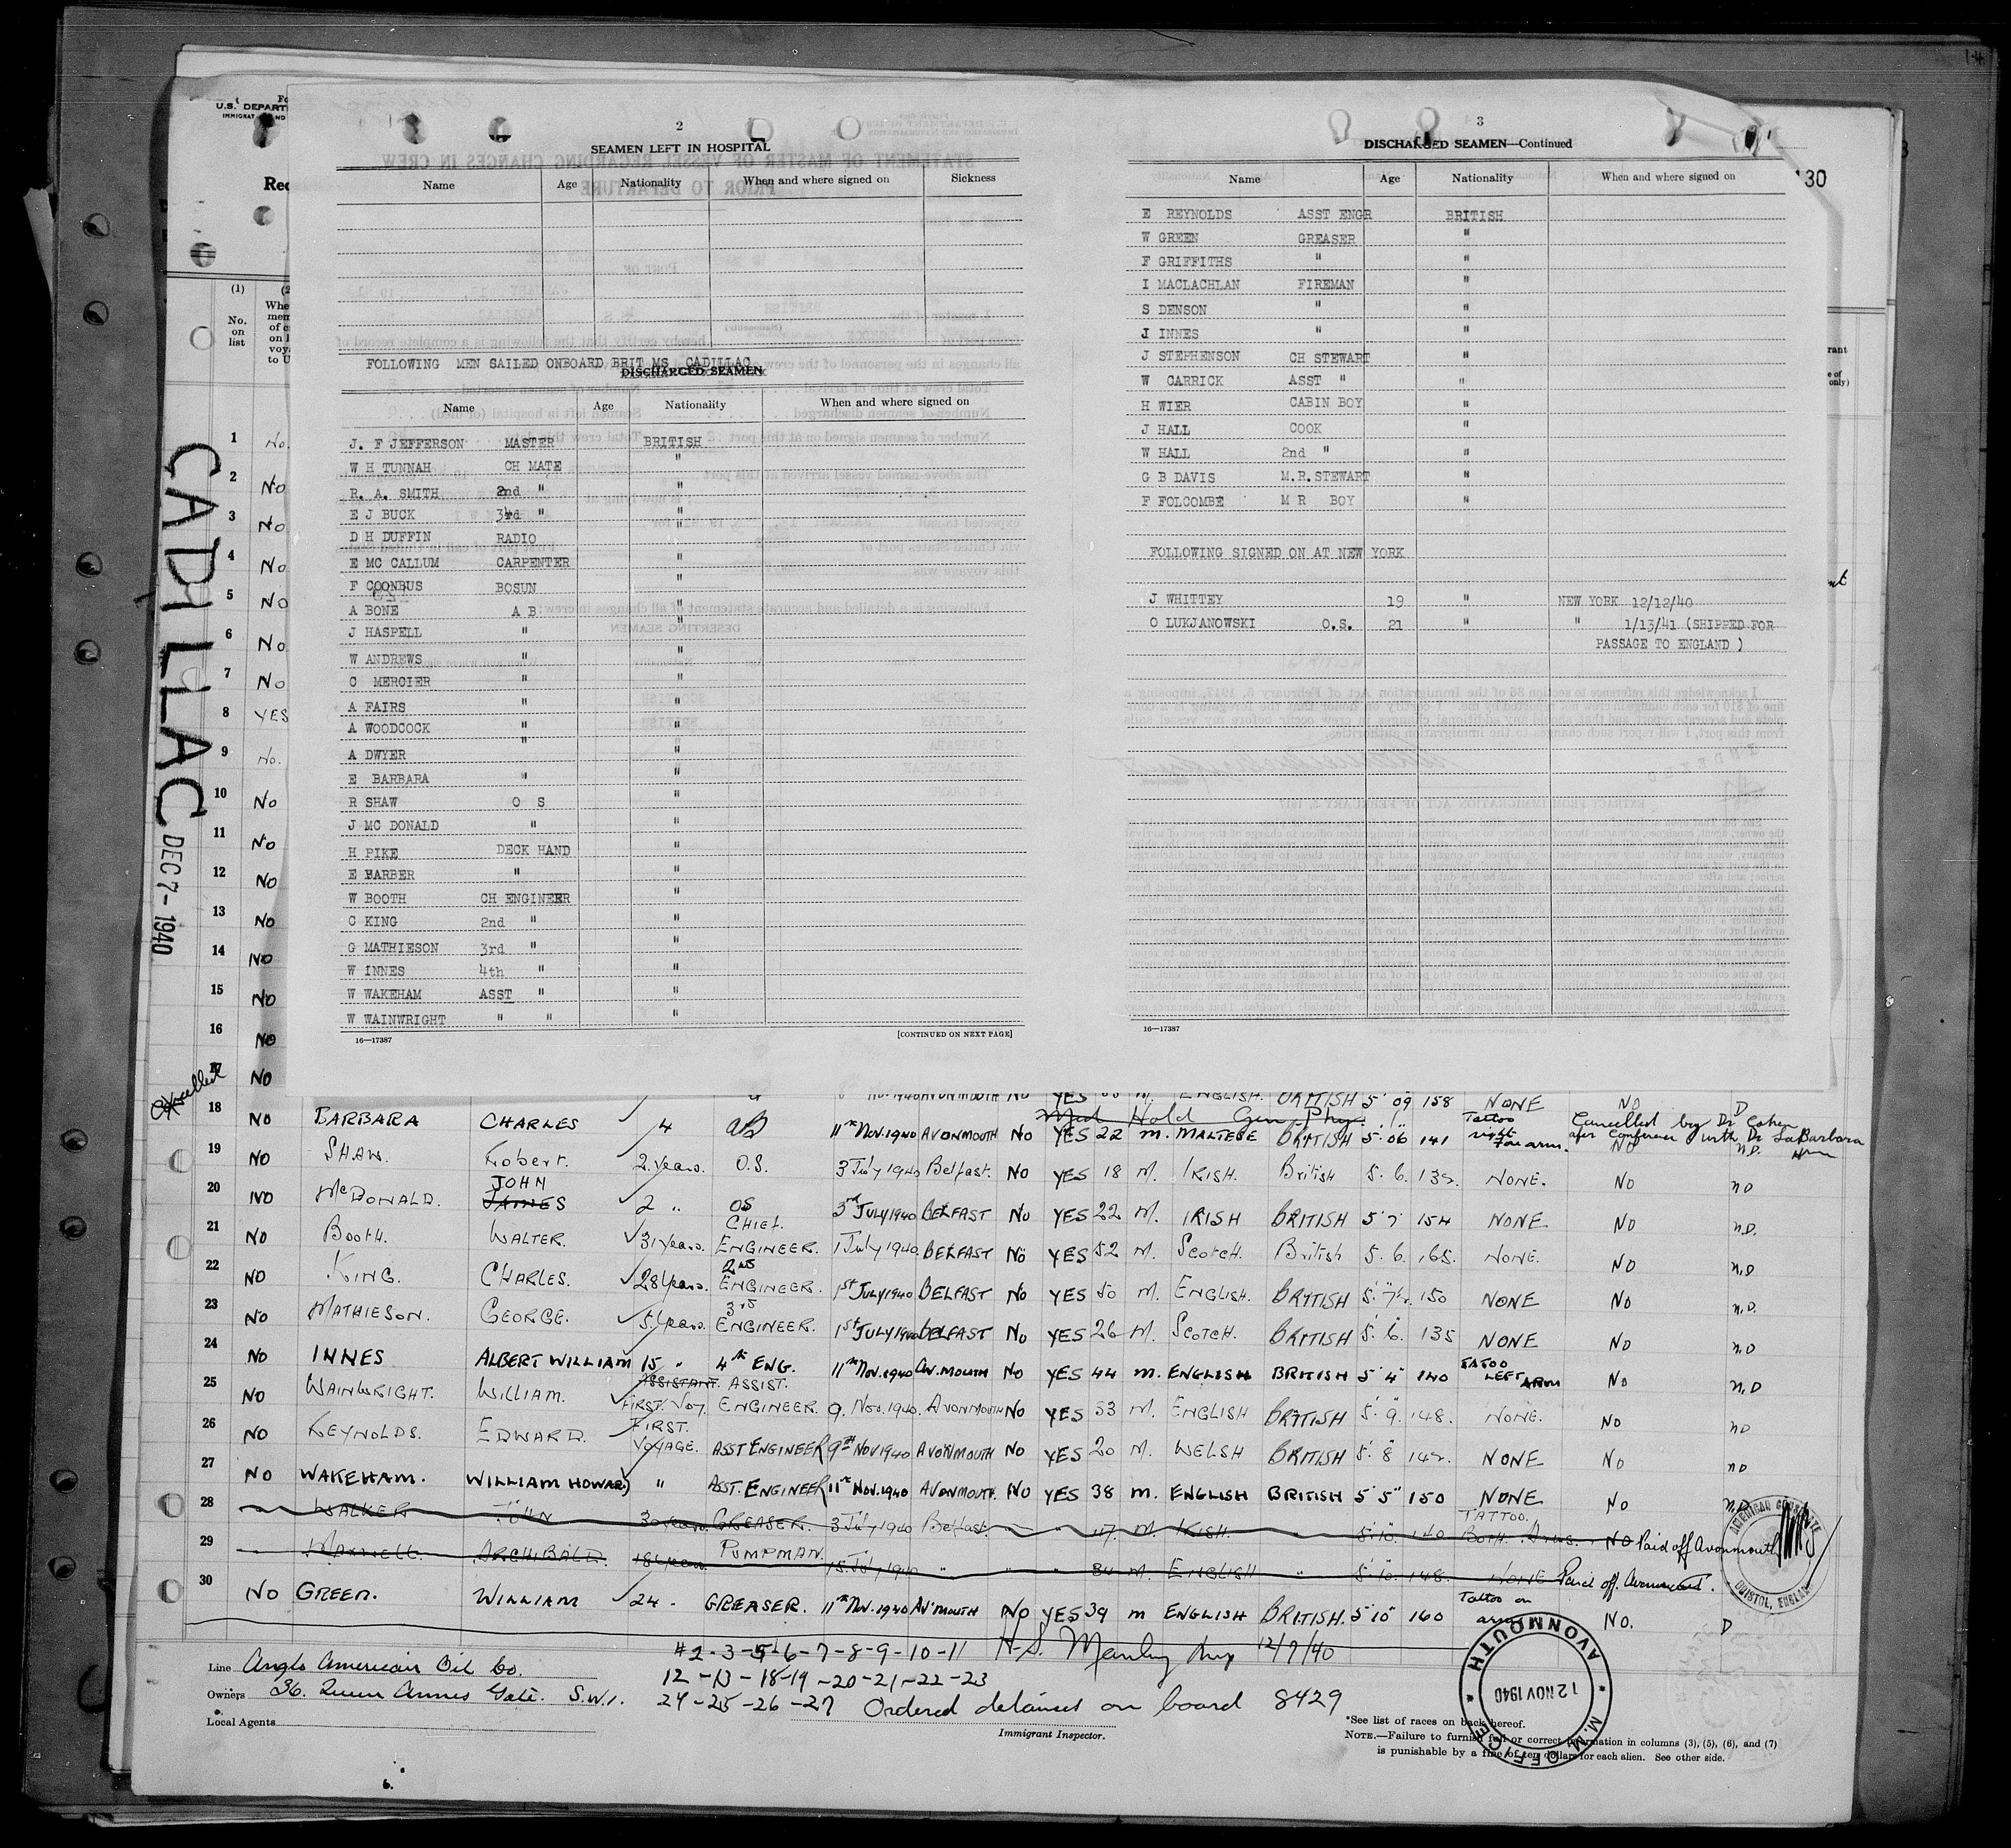 14
U.S. DEPART
IMMIGRAT
Rec
30
(1)
No.
on
list
CADILLAC
DEC 7 - 1940
2
SEAMEN LEFT IN HOSPITAL
Name Age Nationality When and where signed on Sickness
FOLLOWING MEN SAILED ONBOARD BRIT MS CADILLAC
DISCHARGED SEAMEN
Name Age Nationality When and where signed on
J. F JEFFERSON MASTER BRITISH
W H TUNNAH CH MATE "
R. A. SMITH 2nd " "
E J BUCK 3rd " "
D H DUFFIN RADIO "
E MC CALLUM CARPENTER "
F COONBUS BOSUN "
A BONE A B "
J HASPELL " "
W ANDREWS " "
C MERCIER " "
A FAIRS " "
A WOODCOCK " "
A DWYER " "
E BARBARA " "
R SHAW O S "
J MC DONALD " "
H PIKE DECK HAND "
E BARBER " "
W BOOTH CH ENGINEER "
C KING 2nd " "
G MATHIESON 3rd " "
W INNES 4th " "
W WAKEHAM ASST " "
W WAINWRIGHT " " "
16—17387 [CONTINUED ON NEXT PAGE]
3
DISCHARGED SEAMEN—Continued
Name Age Nationality When and where signed on
E REYNOLDS ASST ENGR BRITISH
W GREEN GREASER "
F GRIFFITHS " "
I MACLACHLAN FIREMAN "
S DENSON " "
J INNES " "
J STEPHENSON CH STEWART "
W CARRICK ASST " "
H WIER CABIN BOY "
J HALL COOK "
W HALL 2nd " "
G B DAVIS M.R.STEWART "
F FOLCOMBE M R BOY "
FOLLOWING SIGNED ON AT NEW YORK
J WHITTEY 19 " NEW YORK 12/12/40
O LUKJANOWSKI O.S. 21 " " 1/13/41 (SHIPPED FOR
PASSAGE TO ENGLAND )
16—17387
1 No.
2 No
3 No
4 No
5 No
6 No
7 No
8 YES
9 No.
10 No
11 No
12 No
13 No
14 No
15 No
16 No
17 No
YES ENGLISH. BRITISH 5' 09 158 NONE NO D
Med Hold Gen Phy. Cancelled by Dr Cohen
after Conference with Dr LaBarbara
18 NO BARBARA CHARLES 4 AB 11th Nov. 1940 AVONMOUTH No YES 22 m. MALTESE BRITISH 5' 06 141 Tattoo right Forearm. NO n.D.
19 NO SHAW. Robert. 2 years. O.S. 3 July 1940 Belfast. No YES 18 M. IRISH. British 5. 6. 132. NONE. NO nD
20 NO McDONALD. JOHN JAMES 2 " OS 3rd JULY 1940 BELFAST No YES 22 M. IRISH BRITISH 5' 7 154 NONE NO n.D.
21 NO Booth. WALTER. 31 Years. CHIEF. ENGINEER. 1 July 1940. BELFAST No YES 52 M. Scotch. British 5. 6. 165. NONE. NO n.D
22 NO KING. CHARLES. 28 Years. 2nd ENGINEER. 1st JULY 1940 BELFAST No YES 50 M. ENGLISH. BRITISH 5. 7½. 150 NONE NO n.D.
23 NO MATHIESON. GEORGE. 5 Years. 3rd ENGINEER. 1st JULY 1940 BELFAST No YES 26 M. SCOTCH. BRITISH 5. 6. 135 NONE NO n.D
24 NO INNES ALBERT WILLIAM 15 " 4th ENG. 11th Nov. 1940 AV. MOUTH No YES 44 m. ENGLISH BRITISH 5' 4" 140 TATOO LEFT ARM NO n.D
25 NO WAINWRIGHT. WILLIAM. FIRST. VOY. ASSISTANT. ASSIST. ENGINEER. 9. Nov. 1940. AVONMOUTH No YES 53 M. ENGLISH BRITISH 5. 9. 148. NONE. NO nD
26 NO REYNOLDS. EDWARD. FIRST. VOYAGE. ASST ENGINEER 9th NOV 1940 AVONMOUTH No YES 20 M. WELSH BRITISH 5. 8 142. NONE NO nD
27 NO WAKEHAM. WILLIAM HOWARD " ASST. ENGINEER 11th NOV. 1940 AVONMOUTH. No YES 38 m. ENGLISH BRITISH 5' 5" 150 NONE NO n.D
28 WALKER JOHN 30 years. GREASER. 3 July 1940 Belfast. 47. M. IRISH. " 5. 10. 140 TATTOO. Both Arms. NO Paid off Avonmouth
29 MAXWELL. ARCHIBALD. 18 Years. PUMPMAN. 15. July 1940 " " 34 M. ENGLISH " 5. 10. 148. NONE Paid off. Avonmouth.
30 NO GREEN. WILLIAM 24 - GREASER. 11th Nov. 1940 AV'MOUTH No YES 39 m ENGLISH BRITISH. 5' 10" 160 Tattoo on arms NO. D
AMERICAN CONSULATE BRISTOL, ENGLAND
#2-3-5-6-7-8-9-10-11 H.S. Manley 12/7/40
12-13-18-19-20-21-22-23
24-25-26-27 Ordered detained on board 8429
Line Anglo American Oil Co.
Owners 36. Queen Annes Gate. S.W.1.
Local Agents
Immigrant Inspector.
*See list of races on back hereof.
NOTE.—Failure to furnish full or correct information in columns (3), (5), (6), and (7)
is punishable by a fine of ten dollars for each alien. See other side.
M.M. OFFICE * AVONMOUTH *
12 NOV 1940